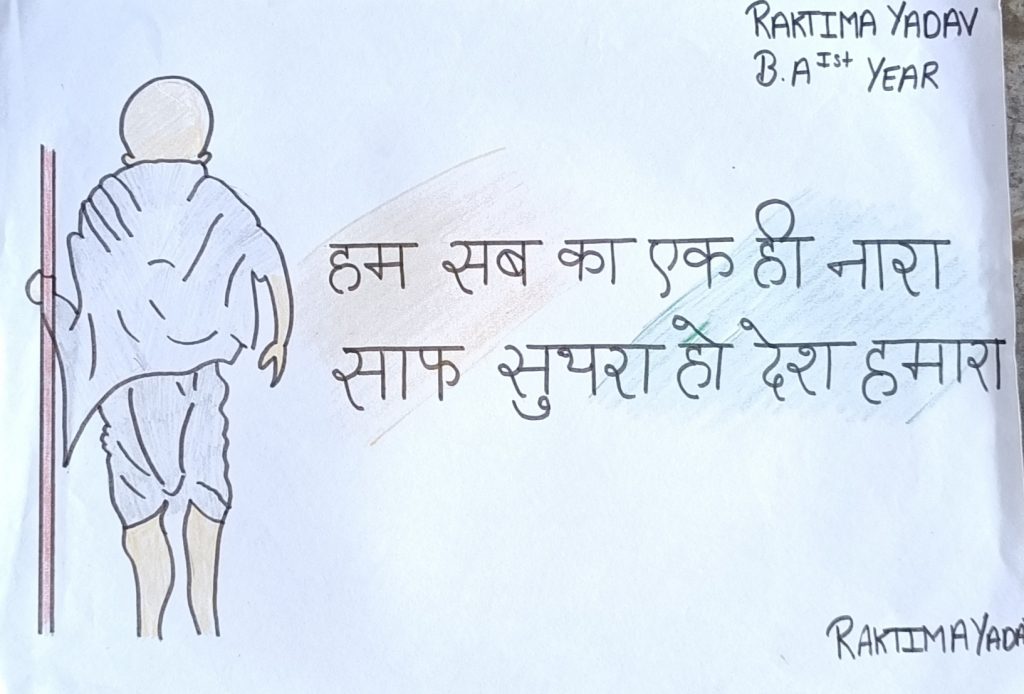 RAKTIMA YADAV
B.A Ist YEAR
हम सब का एक ही नारा
साफ सुथरा हो देश हमारा
RAKTIMA YADA